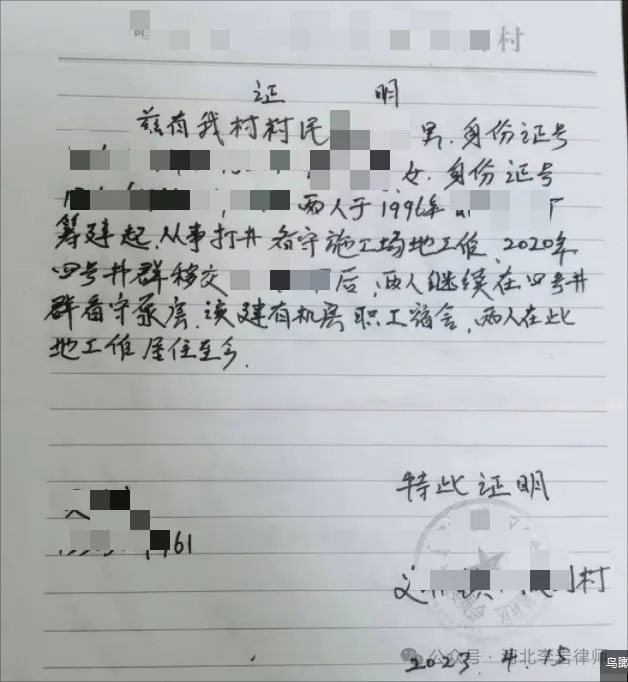 村
证 明
兹有我村村民 男.身份证号
女.身份证号
两人于1996年 厂
筹建起.从事打井看守施工场地工作.2020年
四号井群移交 后,两人继续在四号井
群看守泵房.该建有机房职工宿舍,两人在此
地工作居住至今.
特此证明
161
村
2023.4.15
公众号·河北李岩律师
鸟瞰